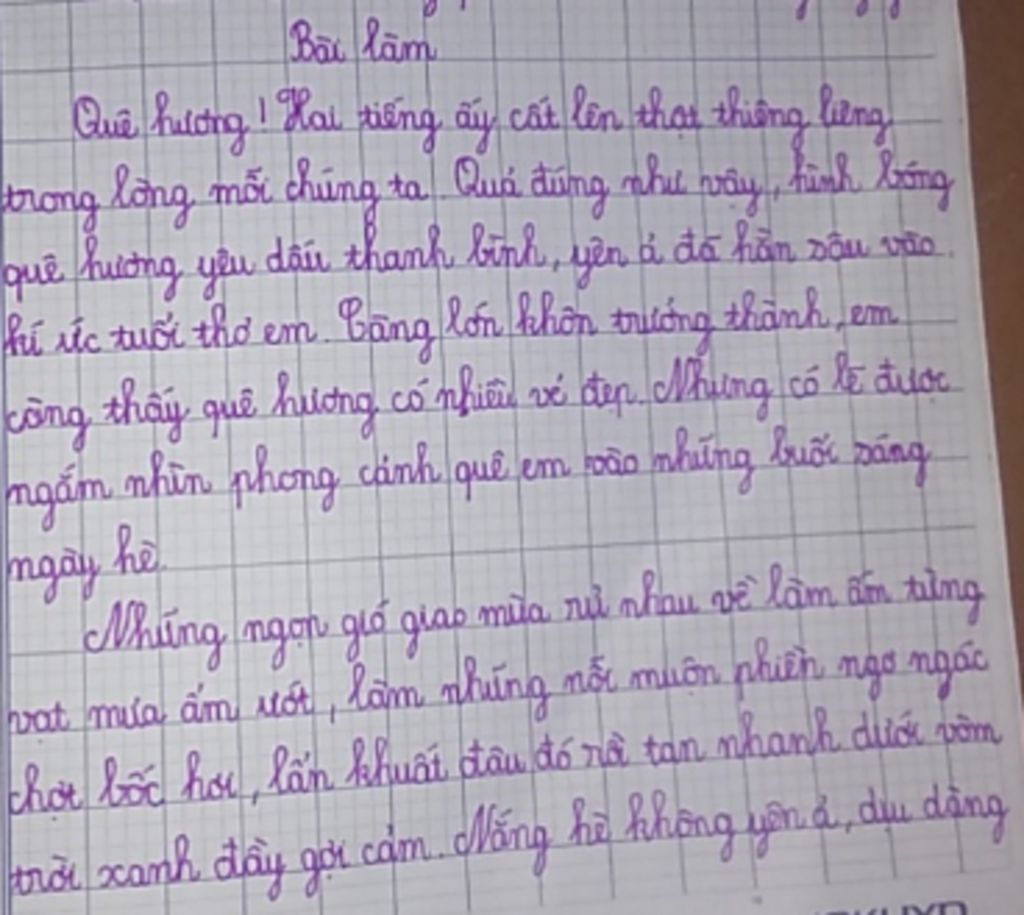 Bài làm
Quê hương! Hai tiếng ấy cất lên thật thiêng liêng
trong lòng mỗi chúng ta. Quả đúng như vậy, hình bóng
quê hương yêu dấu thanh bình, yên ả đã hằn sâu vào
kí ức tuổi thơ em. Càng lớn khôn trưởng thành, em
càng thấy quê hương có nhiều vẻ đẹp. Nhưng có lẽ được
ngắm nhìn phong cảnh quê em vào những buổi sáng
ngày hè.
Những ngọn gió giao mùa rủ nhau về làm ấm từng
hạt mưa ẩm ướt, làm những nỗi muộn phiền ngơ ngác
chợt bốc hơi, lẩn khuất đâu đó rồi tan nhanh dưới vòm
trời xanh đầy gợi cảm. Nắng hè không yên ả, dịu dàng